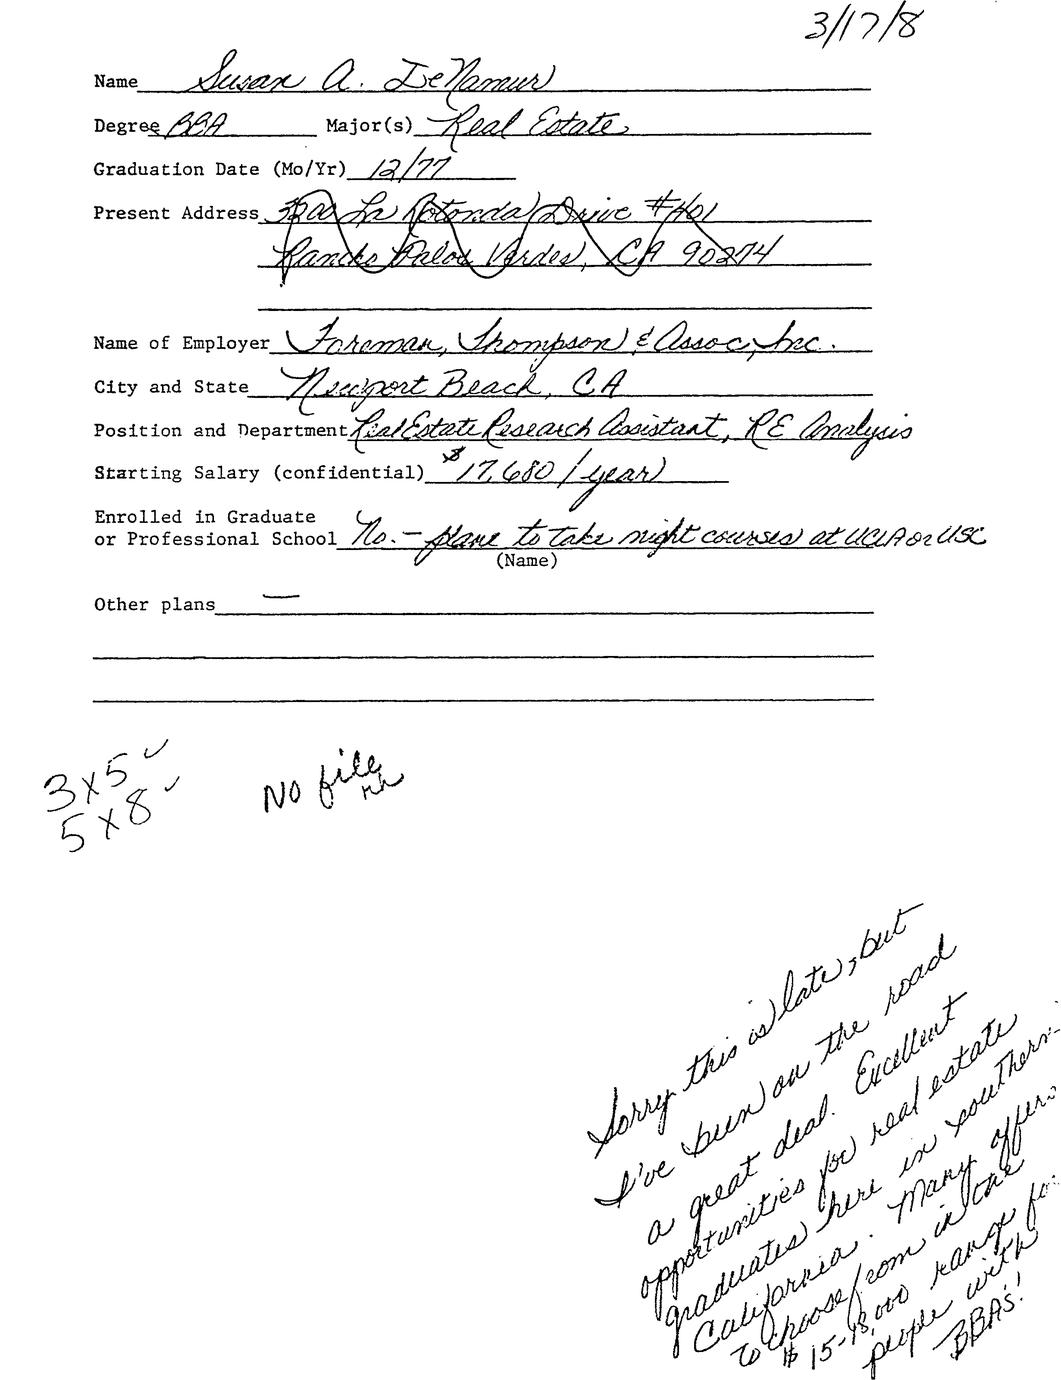 3/17/8
Name Susan A. DeNamur
Degree BBA Major(s) Real Estate
Graduation Date (Mo/Yr) 12/77
Present Address La Rotonda Drive #401
Rancho Palos Verdes, CA 90274
Name of Employer Foreman, Thompson & Assoc, Inc.
City and State Newport Beach, CA
Position and Department Real Estate Research Assistant, RE Analysis
Starting Salary (confidential) $17,680 / year
Enrolled in Graduate
or Professional School No. - plans to take night courses at UCLA or USC
(Name)
Other plans —
3x5 ✓
5x8 ✓
No file
rh
Sorry this is late, but
I've been on the road
a great deal. Excellent
opportunities for real estate
graduates here in southern
California. Many offers
to choose from in the
$15-18,000 range for
people with
BBAs!